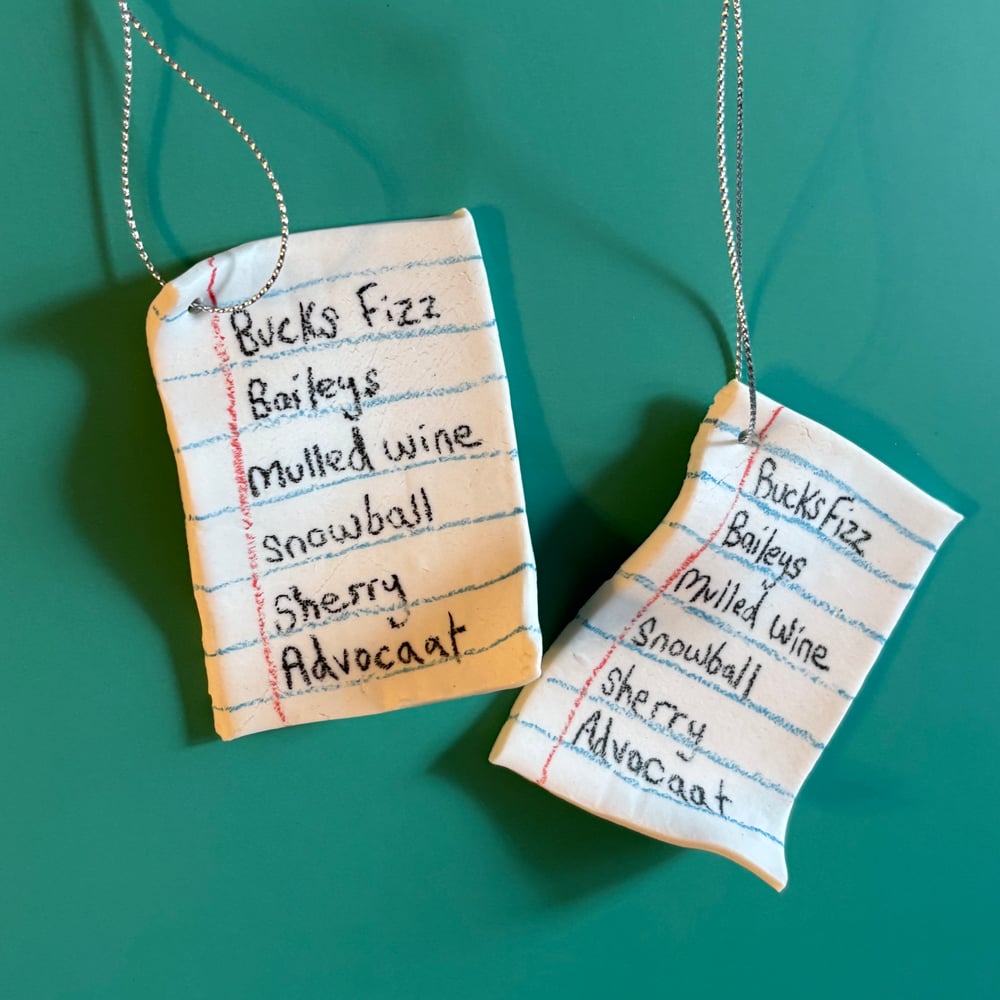 Bucks Fizz
Baileys
Mulled wine
snowball
Sherry
Advocaat
Bucks Fizz
Baileys
Mulled wine
Snowball
Sherry
Advocaat